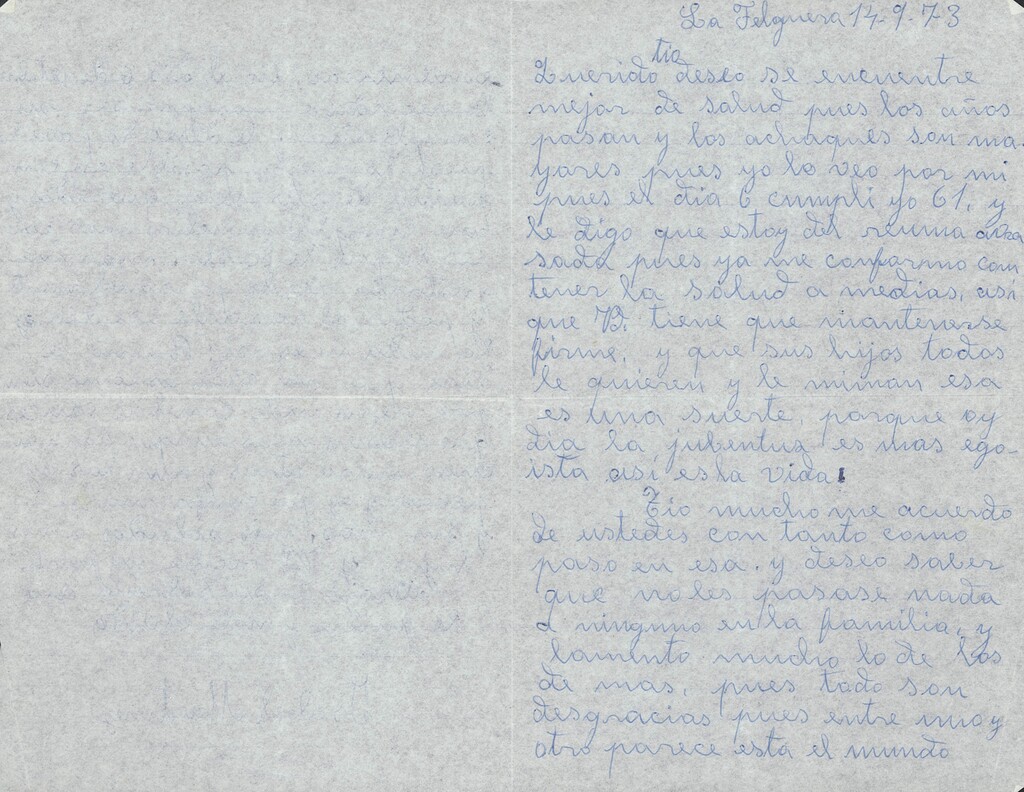 La Felguera 14-9-73
tio
Querido deseo se encuentre
mejor de salud pues los años
pasan y los achaques son ma-
yores pues yo lo veo por mi
pues el dia 6 cumpli yo 61, y
le digo que estoy del reuma
sada pues ya me conformo con
tener la salud a medias, asi
que Vd. tiene que mantenerse
firme, y que sus hijos todos
le quieren y le miman esa
es una suerte, porque oy
dia la jubentuz es mas ego-
ista asi es la vida
Tio mucho me acuerdo
de ustedes con tanto como
paso en esa. y deseo saber
que no les pasase nada
a ninguno en la familia, y
lamento mucho lo de los
de mas, pues todo son
desgracias pues entre uno y
otro parece esta el mundo